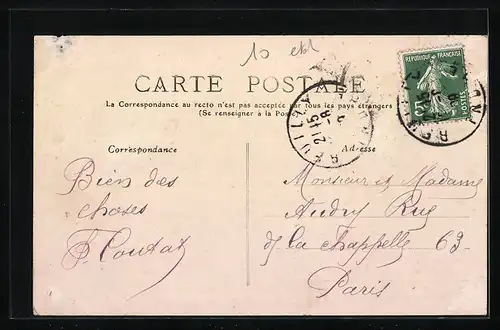 10
RÉPUBLIQUE FRANÇAISE
CARTE POSTALE
La Correspondance au recto n'est pas acceptée par tous les pays étrangers
(Se renseigner à la Poste)
POSTES
21-15
Correspondance
Adresse
Bien des
choses
F. Coutat
Monsieur et Madame
Audry Rue
de la Chappelle 63
Paris